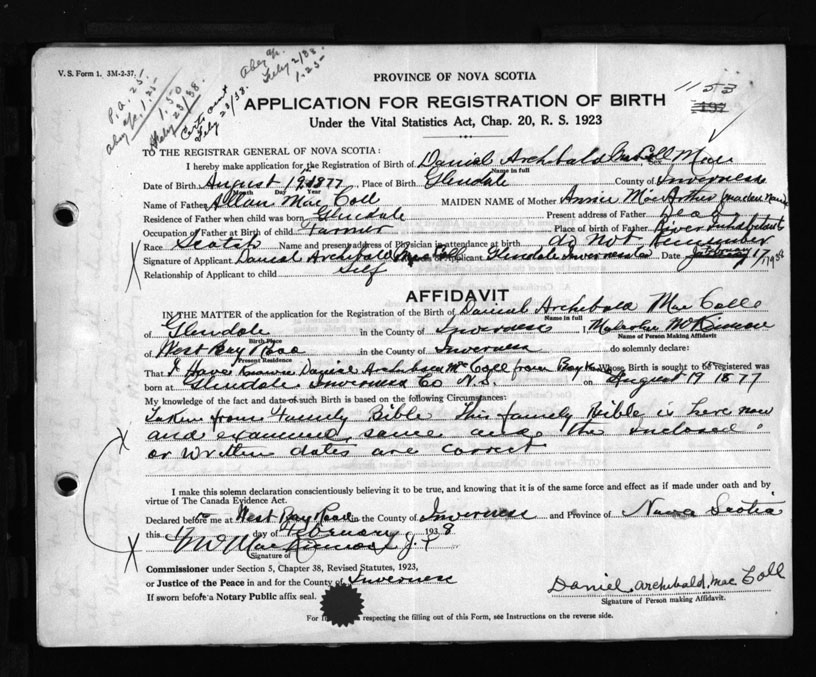 V. S. Form 1. 3M-2-37.
P.A. 25-
1.25-
1.50
Feby 23/38.
Feby 23/38.
Feby 2/38
1.25-
PROVINCE OF NOVA SCOTIA
1153
APPLICATION FOR REGISTRATION OF BIRTH
Under the Vital Statistics Act, Chap. 20, R. S. 1923
TO THE REGISTRAR GENERAL OF NOVA SCOTIA:
I hereby make application for the Registration of Birth of Daniel Archibald Mac Coll Sex Male
Name in full
Date of Birth August 19 1877 Place of Birth Glendale County of Inverness
Month Day Year
Name of Father Allan Mac Coll MAIDEN NAME of Mother Annie MacArthur (maiden name)
Residence of Father when child was born Glendale Present address of Father Dead
Occupation of Father at Birth of child Farmer Place of birth of Father River Inhabitants
Race Scotch Name and present address of Physician in attendance at birth do not Remember
Signature of Applicant Daniel Archibald Mac Coll Applicant Glendale Inverness Co Date February 17/1938
Relationship of Applicant to child Self
AFFIDAVIT
IN THE MATTER of the application for the Registration of the Birth of Daniel Archibald Mac Coll
Name in full
of Glendale in the County of Inverness I, Malcolm McKinnon
Birth Place Name of Person Making Affidavit
of West Bay Road in the County of Inverness do solemnly declare:
Present Residence
That I Have Known Daniel Archibald Mc Coll from Whose Birth is sought to be registered was
born at Glendale Inverness Co N.S. on August 19 1877
My knowledge of the fact and date of such Birth is based on the following Circumstances:
Taken from Family Bible This family Bible is here now
and examined same and the enclosed
or written dates are correct
I make this solemn declaration conscientiously believing it to be true, and knowing that it is of the same force and effect as if made under oath and by
virtue of The Canada Evidence Act.
Declared before me at West Bay Road in the County of Inverness and Province of Nova Scotia
this day of February 1938
MacKinnon J.P.
Signature of
Commissioner under Section 5, Chapter 38, Revised Statutes, 1923,
or Justice of the Peace in and for the County of Inverness
If sworn before a Notary Public affix seal.
Daniel Archibald Mac Coll
Signature of Person making Affidavit.
respecting the filling out of this Form, see Instructions on the reverse side.